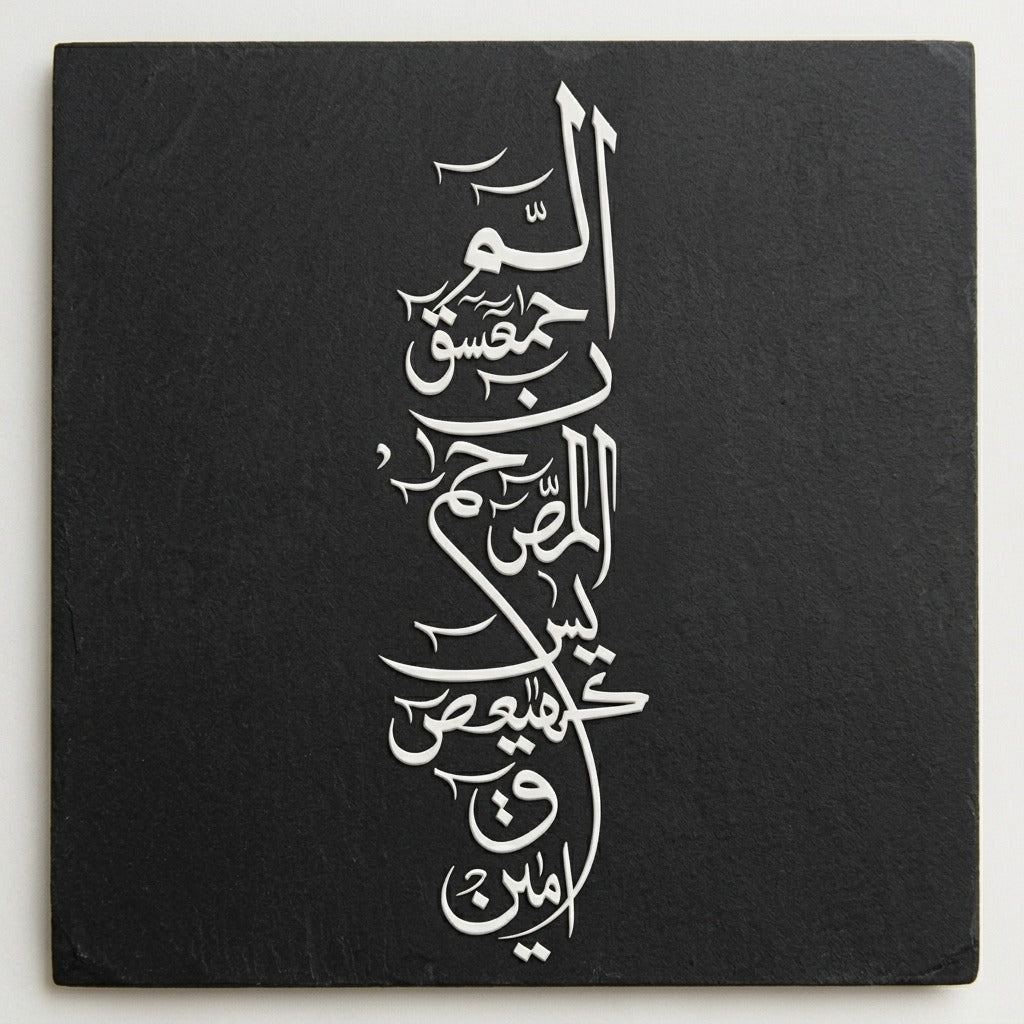 الٓمّٓ
حمعٓسٓقٓ
نٓ
حمٓ
الٓمّٓصٓ
يسٓ
كٓهيعٓصٓ
قٓ
امين